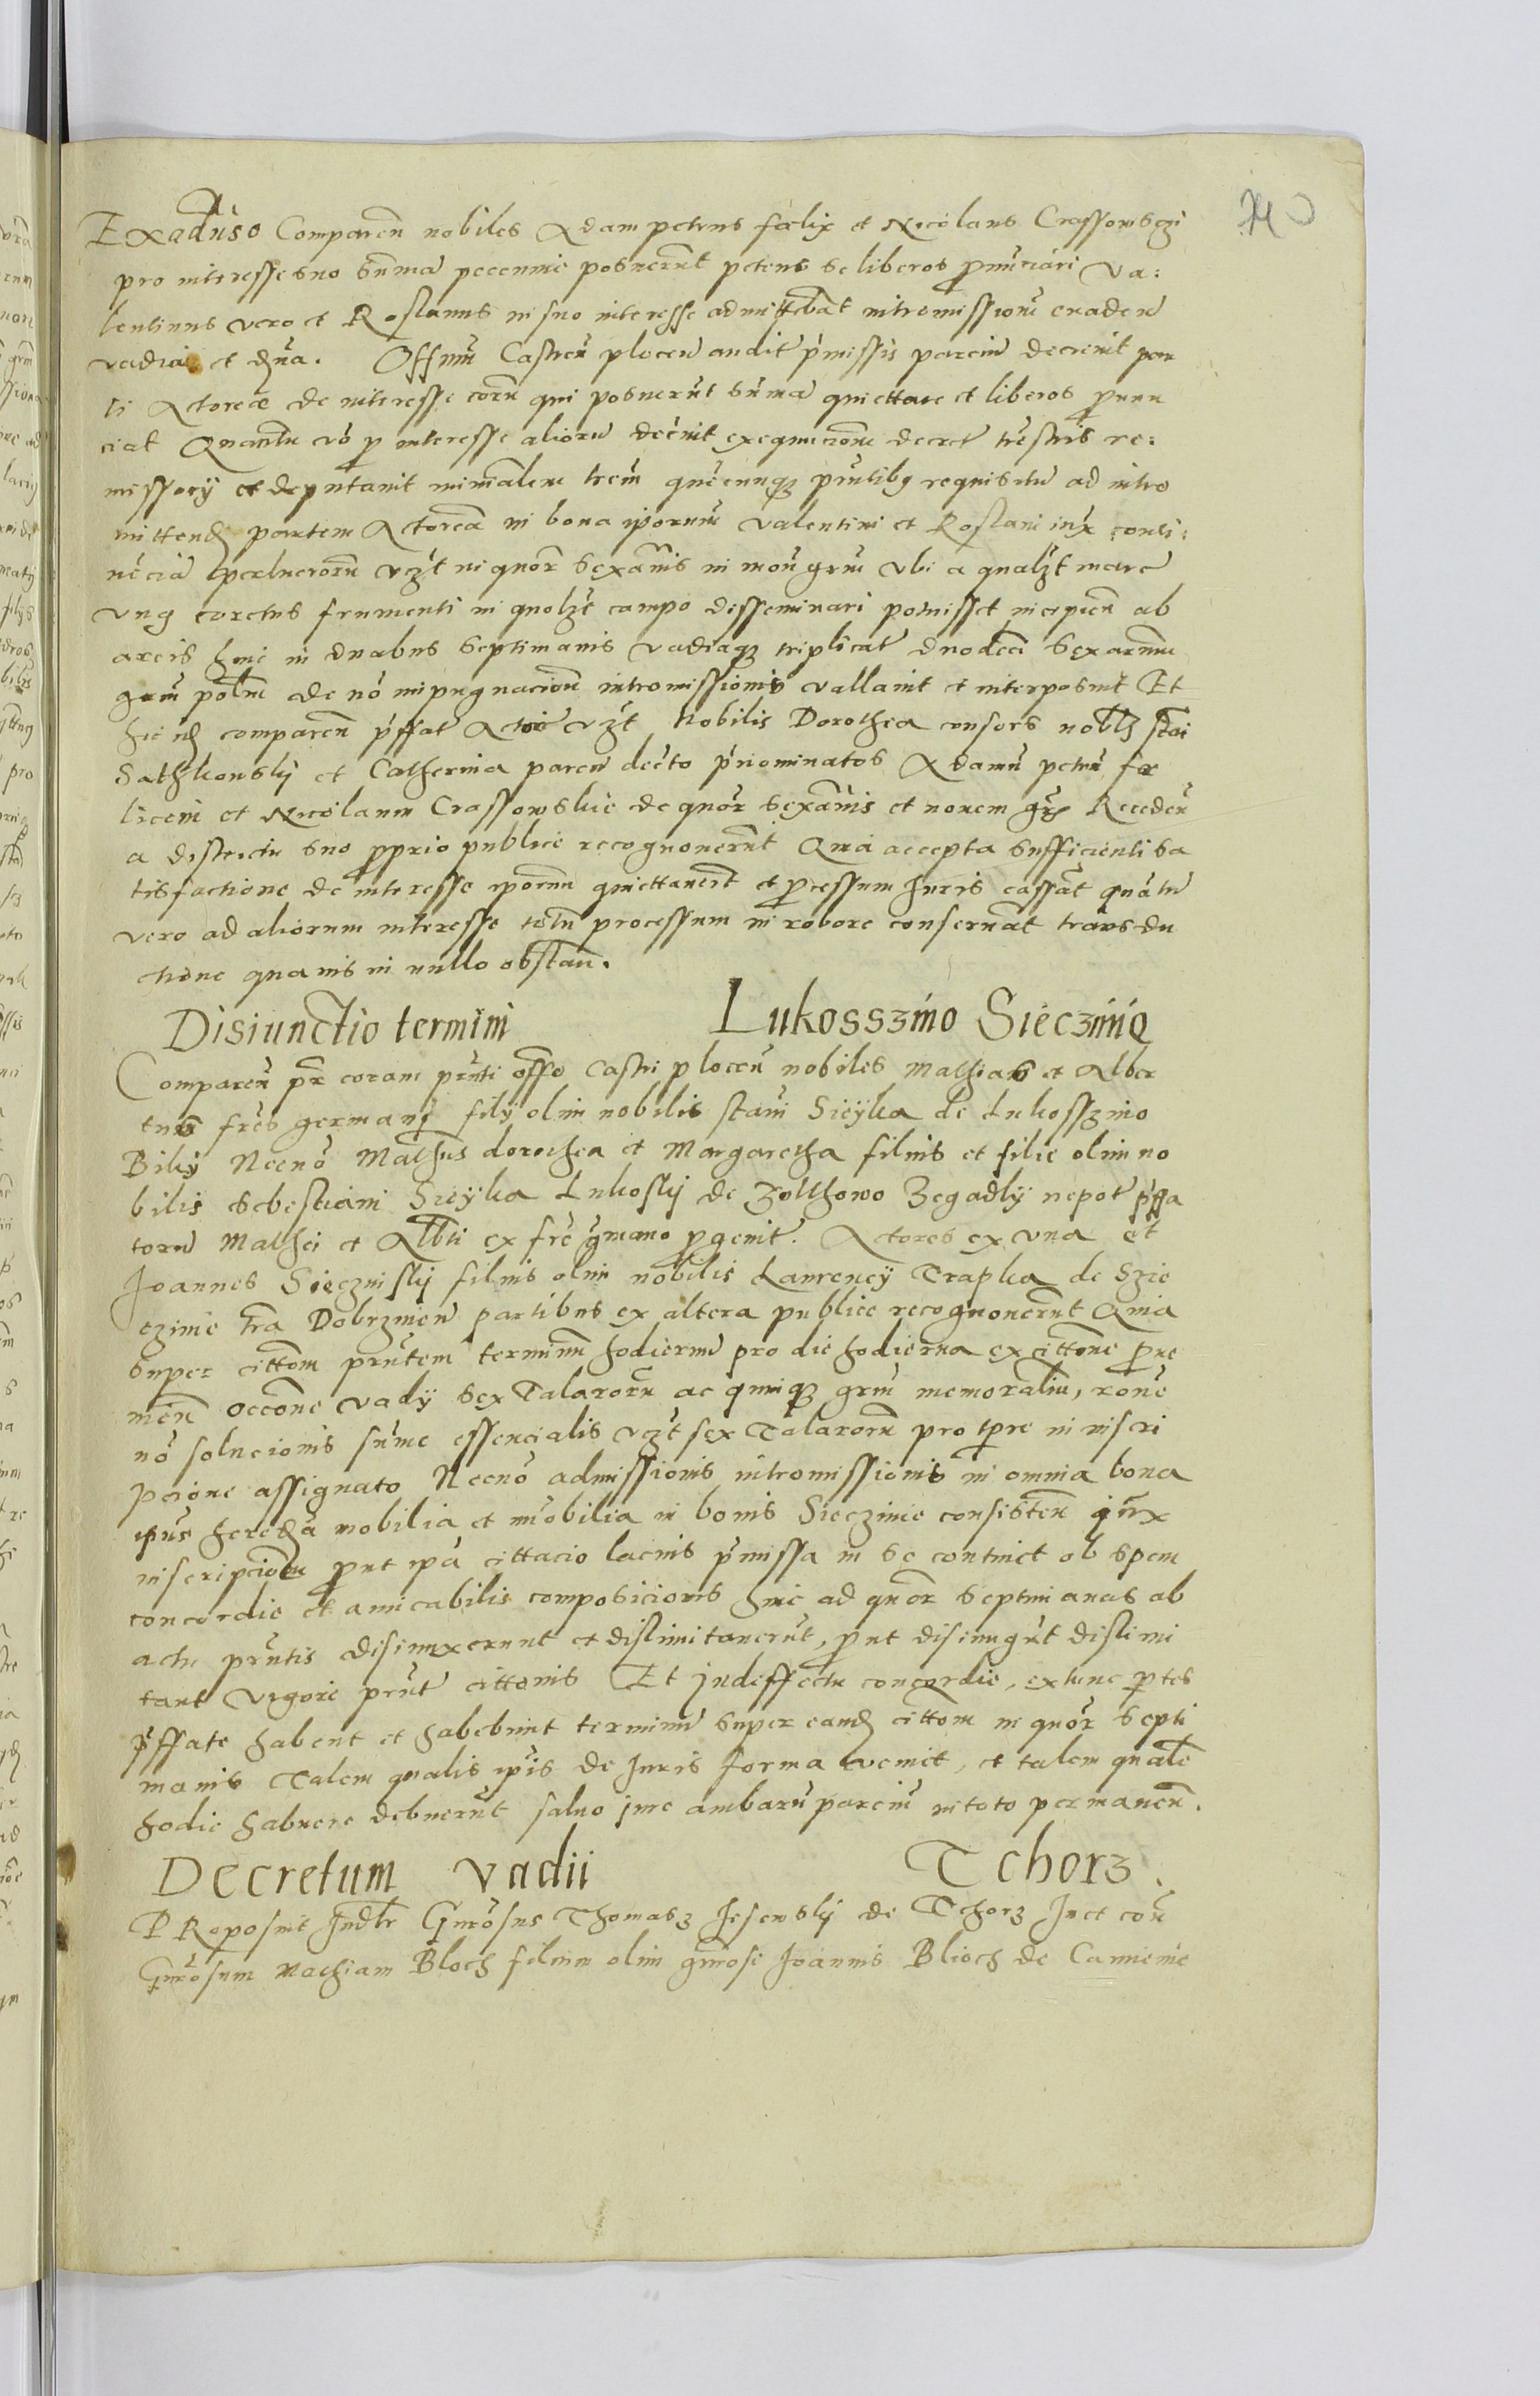 Exaduso Comparen nobiles Adam petrus faelix et Nicolaus Crassowsczi
pro interesse suo summa peccunie posuerunt petens se liberos pronunciari Va:
lentinus vero et Roslanus in suo interesse admittebat intromissionem evaden
vadia et dna. Offium Castren plocen audit pmissis parcium decrevit par
ti Actoree de interesse eorum qui posuerunt summa quiettare et liberos pronun
ciat Quantum vo p interesse aliorum decrevit exequucionem decret trestris re:
missory et deputavit mimalem trem quecunq pntibg requisitu ad intro
mittend partem Actorea in bona iporum Valentini et Roslani iux conti:
nencia vczt in quor sexamis in mon grm Vbi a qualzt marc
vng corctus frumenti in quolzt campo disseminari potuisset incipien ab
arcis hinc in duabus septimanis vadiaq triplicat duodeci sexarum
grm polm de no inpugnacionem intromissionis vallavit et interposuit Et
hic id comparen pffat Actore vzt Nobilis Dorothea consors noblz stai
Sathkowsky et Catherina paren decto prnominatos Adamum petrum fae
licem et Nicolaum Crassowskie de quor sexamis et novem grs Receden
a districtu suo pprio publice recognoverunt Quia accepta sufficienti sa
tisfactione de interesse iporum quiettaverunt et pcessum Juris cassat quantum
vero ad aliorum interesse totum processum in robore conservat transdu
ctione quavis in nullo obstan.
Disiunctio termini Lukosszino Sieczinie
Comparen pr coram pnti offo Castri plocen nobiles Mathias et Alber
tus fres germani fily olim nobilis stani Sieyka de Lukosszino
Biky Necno Mathus dorothea et Margaretha filius et filie olim no
bilis Sebestiani Sieyka Lukosky de Zolthowo Zegadly nepot pffa
torum Mathei et Albti ex fre gmano pgenit. Actores ex vna et
Joannes Sieczinsky filius olim nobilis Laurency Trapka de Szie
czinie tra Dobrzinen partibus ex altera publice recognoverunt Quia
super cittom pntem terminum hodiernum pro die hodierna ex cittone pve
nien occone vady sex Talarorum ac quinq grm memoralium, rone
no solucionis summe essencialis vczt sex Talarorum pro tpre in inscri
pcione assignato Necno admissionis intromissionis in omnia bona
ipius heredia mobilia et imobilia in bonis Sieczinie consisten iux
inscripcionem prut ipa cittacio lacius pmissa in se continet ob spem
concordie et amicabilis composicionis hinc ad quor septimanas ab
actu pntis disiunxerunt et dislimitaverunt, prut disiungut dislimi
tant Vigore pnt cittonis Et Indeffectu concordie, extunc ptes
pffate habent et habebunt terminum super eand cittom in quor septi
manis Talem qualis ipis de Juris forma venit, et talem qualem
hodie habuere debuerunt salvo jure ambarum parcium in toto permanen.
Decretum Vadii Tchorz.
PRoposuit Judlr Gnrosus Thomasz Jesewsky de Tchorz Juct con
Gnrosum Mathiam Bloch filium olim gnrosi Joannis Blioch de Camienie